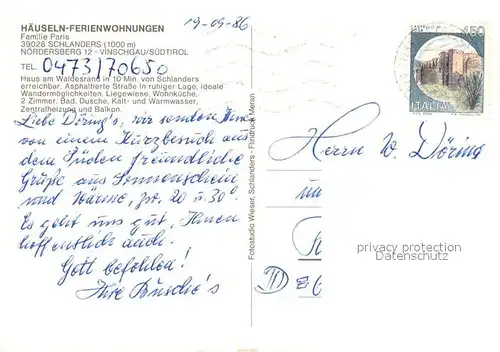 HÄUSELN-FERIENWOHNUNGEN
Familie Paris
39028 SCHLANDERS (1000 m)
NÖRDERSBERG 12 - VINSCHGAU/SÜDTIROL
TEL. 0473/70650
Haus am Waldesrand in 10 Min. von Schlanders
erreichbar. Asphaltierte Straße in ruhiger Lage, ideale
Wandermöglichkeiten. Liegewiese, Wohnküche,
2 Zimmer, Bad, Dusche, Kalt- und Warmwasser,
Zentralheizung und Balkon.
19-09-86
Liebe Döring's, wir senden Ihnen
von einem Kurzbesuch aus
dem Süden freundliche
Grüße aus Sonnenschein
und Wärme, zw. 20 u 30°.
Es geht uns gut, Ihnen
hoffentlich auch.
Gott befohlen!
Ihre
Fotostudio Wieser, Schlanders - Fluridruck Meran
450
ITALIA
Herrn W. Döring
un
privacy protection
Datenschutz